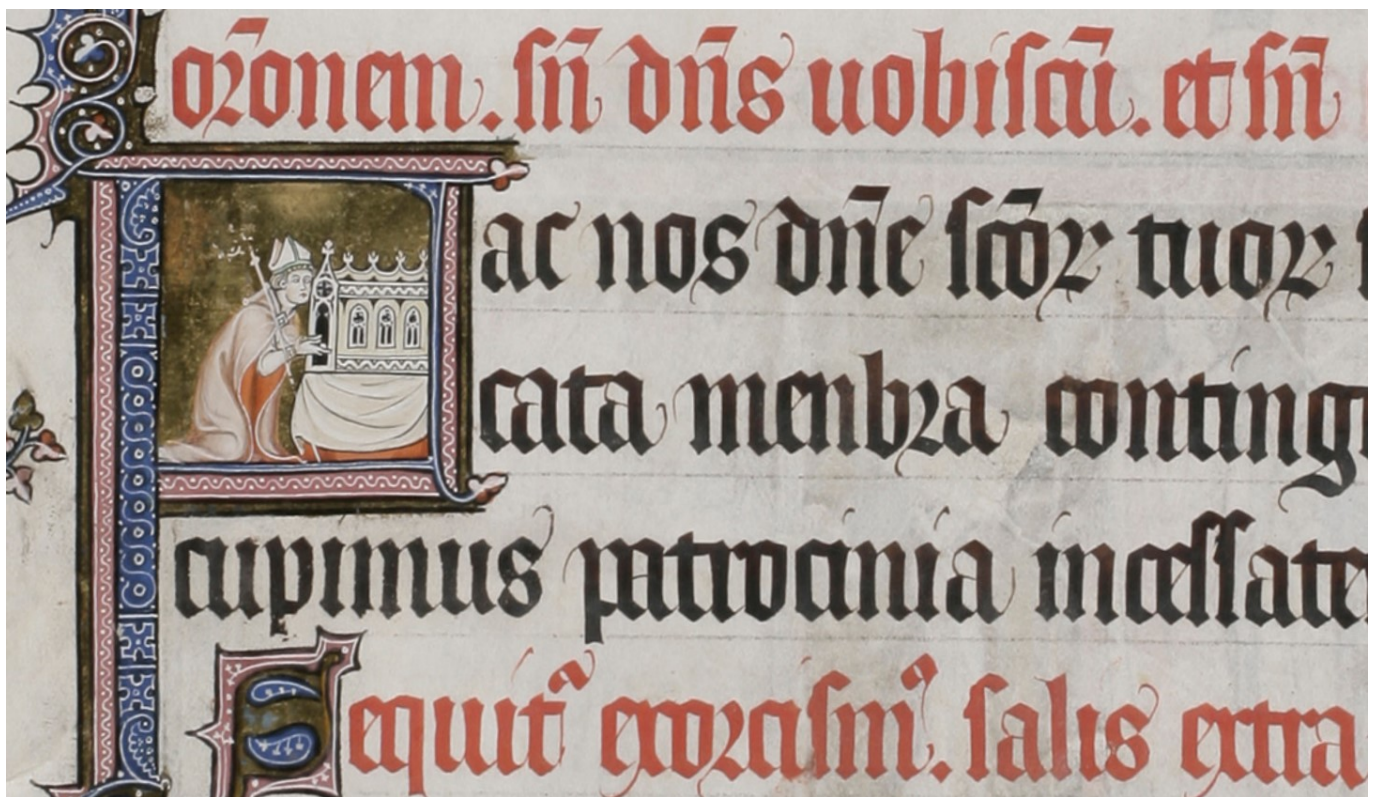 or̄onem. sn̄ dn̄s uobiscū. et sn̄
Fac nos dn̄e sc̄oꝝ tuoꝝ
cata menbra conting
cupimus patrocinia incessate
Sequit᷑ exorcism᷒. salis extra